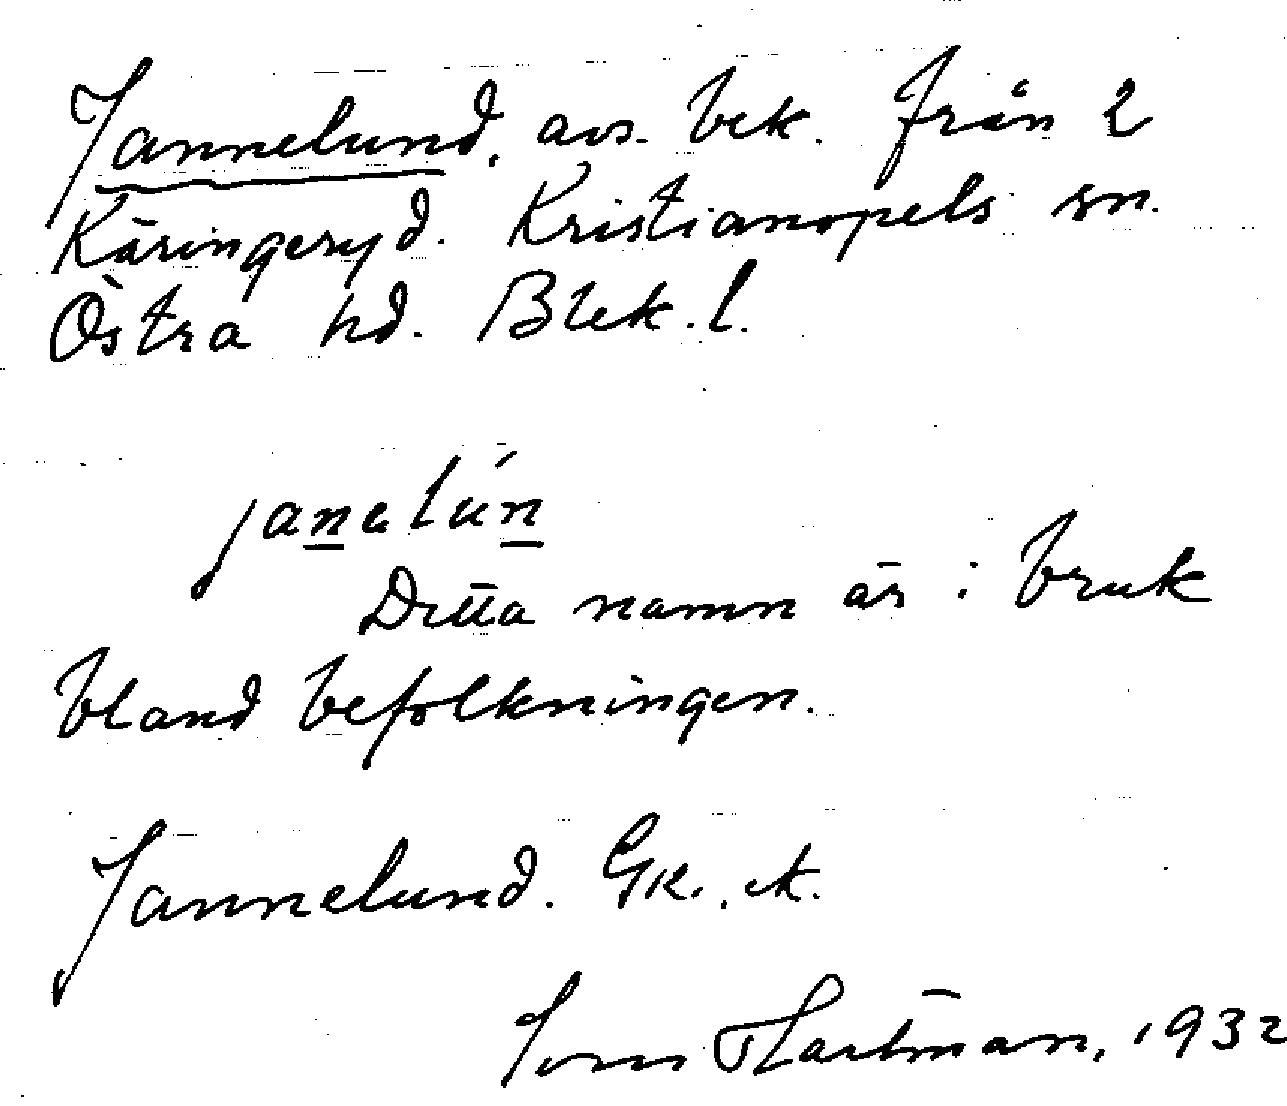 Jannelund, avs. bek. från 2
Käringeryd. Kristianopels sn.
Östra hd. Blek. l.
janelún
Detta namn är i bruk
bland befolkningen.
Jannelund. Gk., ek.
Hartman, 1932